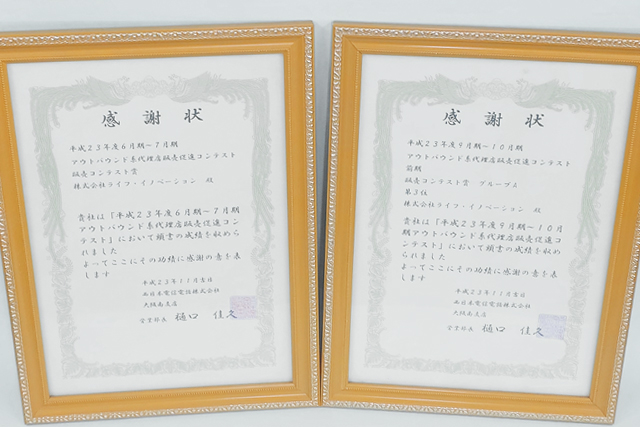 感謝状
平成23年度6月期～7月期
アウトバウンド系代理店販売促進コンテスト
販売コンテスト賞
株式会社ライフ・イノベーション 殿
貴社は「平成23年度6月期～7月期
アウトバウンド系代理店販売促進コ
ンテスト」において頭書の成績を収めら
れました
よってここにその功績に感謝の意を表
します
平成23年11月吉日
西日本電信電話株式会社
大阪南支店
営業部長 樋口 佳久
感謝状
平成23年度9月期～10月期
アウトバウンド系代理店販売促進コンテスト
前期
販売コンテスト賞 グループA
第3位
株式会社ライフ・イノベーション 殿
貴社は「平成23年度9月期～10月
期アウトバウンド系代理店販売促進コ
ンテスト」において頭書の成績を収め
られました
よってここにその功績に感謝の意を表
します
平成23年11月吉日
西日本電信電話株式会社
大阪南支店
営業部長 樋口 佳久